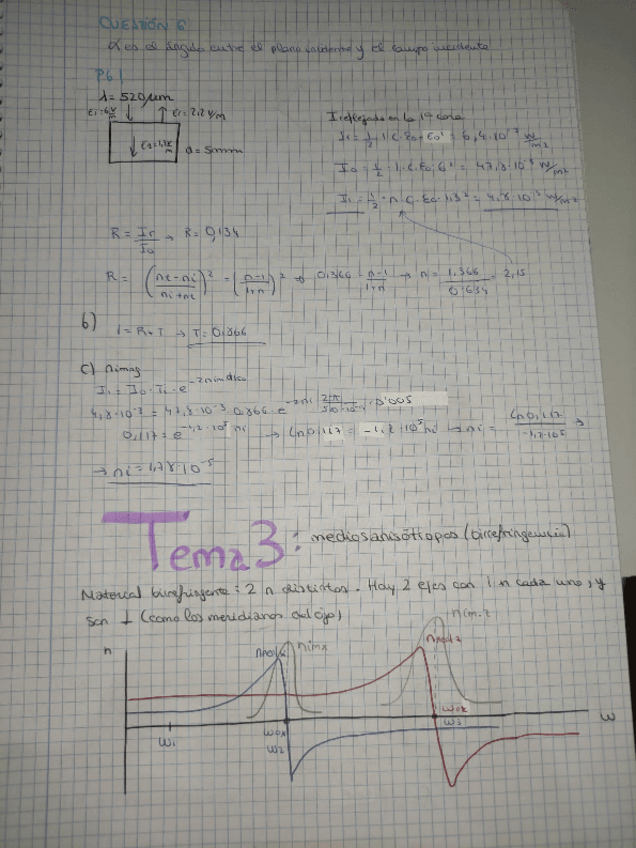 CUESTIÓN 6
α es el ángulo entre el plano incidente y el campo incidente
P6 |
λ = 520 μm
Er = 2,2 V/m
d = 5mm
I reflejada en la 1ª cara
Ir = 1/2 · 1 · c · ε0 · = 6,4 · 10⁻³ W/m²
I0 = 1/2 · 1 · c · ε0 · 6² = 47,8 · 10⁻³ W/m²
I1 = 1/2 · n · c · ε0 · 1,3² = 4,8 · 10⁻³ W/m²
R = Ir/I0 → R = 0,134
R = (nt - ni / ni + nt)² = (n-1 / 1+n)² → 0,366 = n-1 / 1+n → n = 1,366 / 0,634 = 2,15
b) 1 = R + T → T = 0,866
c) nimag
I1 = I0 · T1 · e
4,8 · 10⁻³ = 47,8 · 10⁻³ 0,866 e
0,117 = e^(-1,2 · 10⁵ ni) → Ln 0,117 = -1,2 · 10⁵ ni → ni = Ln 0,117 / -1,2 · 10⁵ →
→ ni = 1,78 · 10⁻⁵
Tema 3: medios anisótropos (birrefringencia)
Material birrefringente: 2 n distintos. Hay 2 ejes con 1 n cada uno, y
son ⊥ (como los meridianos del ojo)
n
nimx
nim.z
w1
w0x
w2
w0x
w3
w